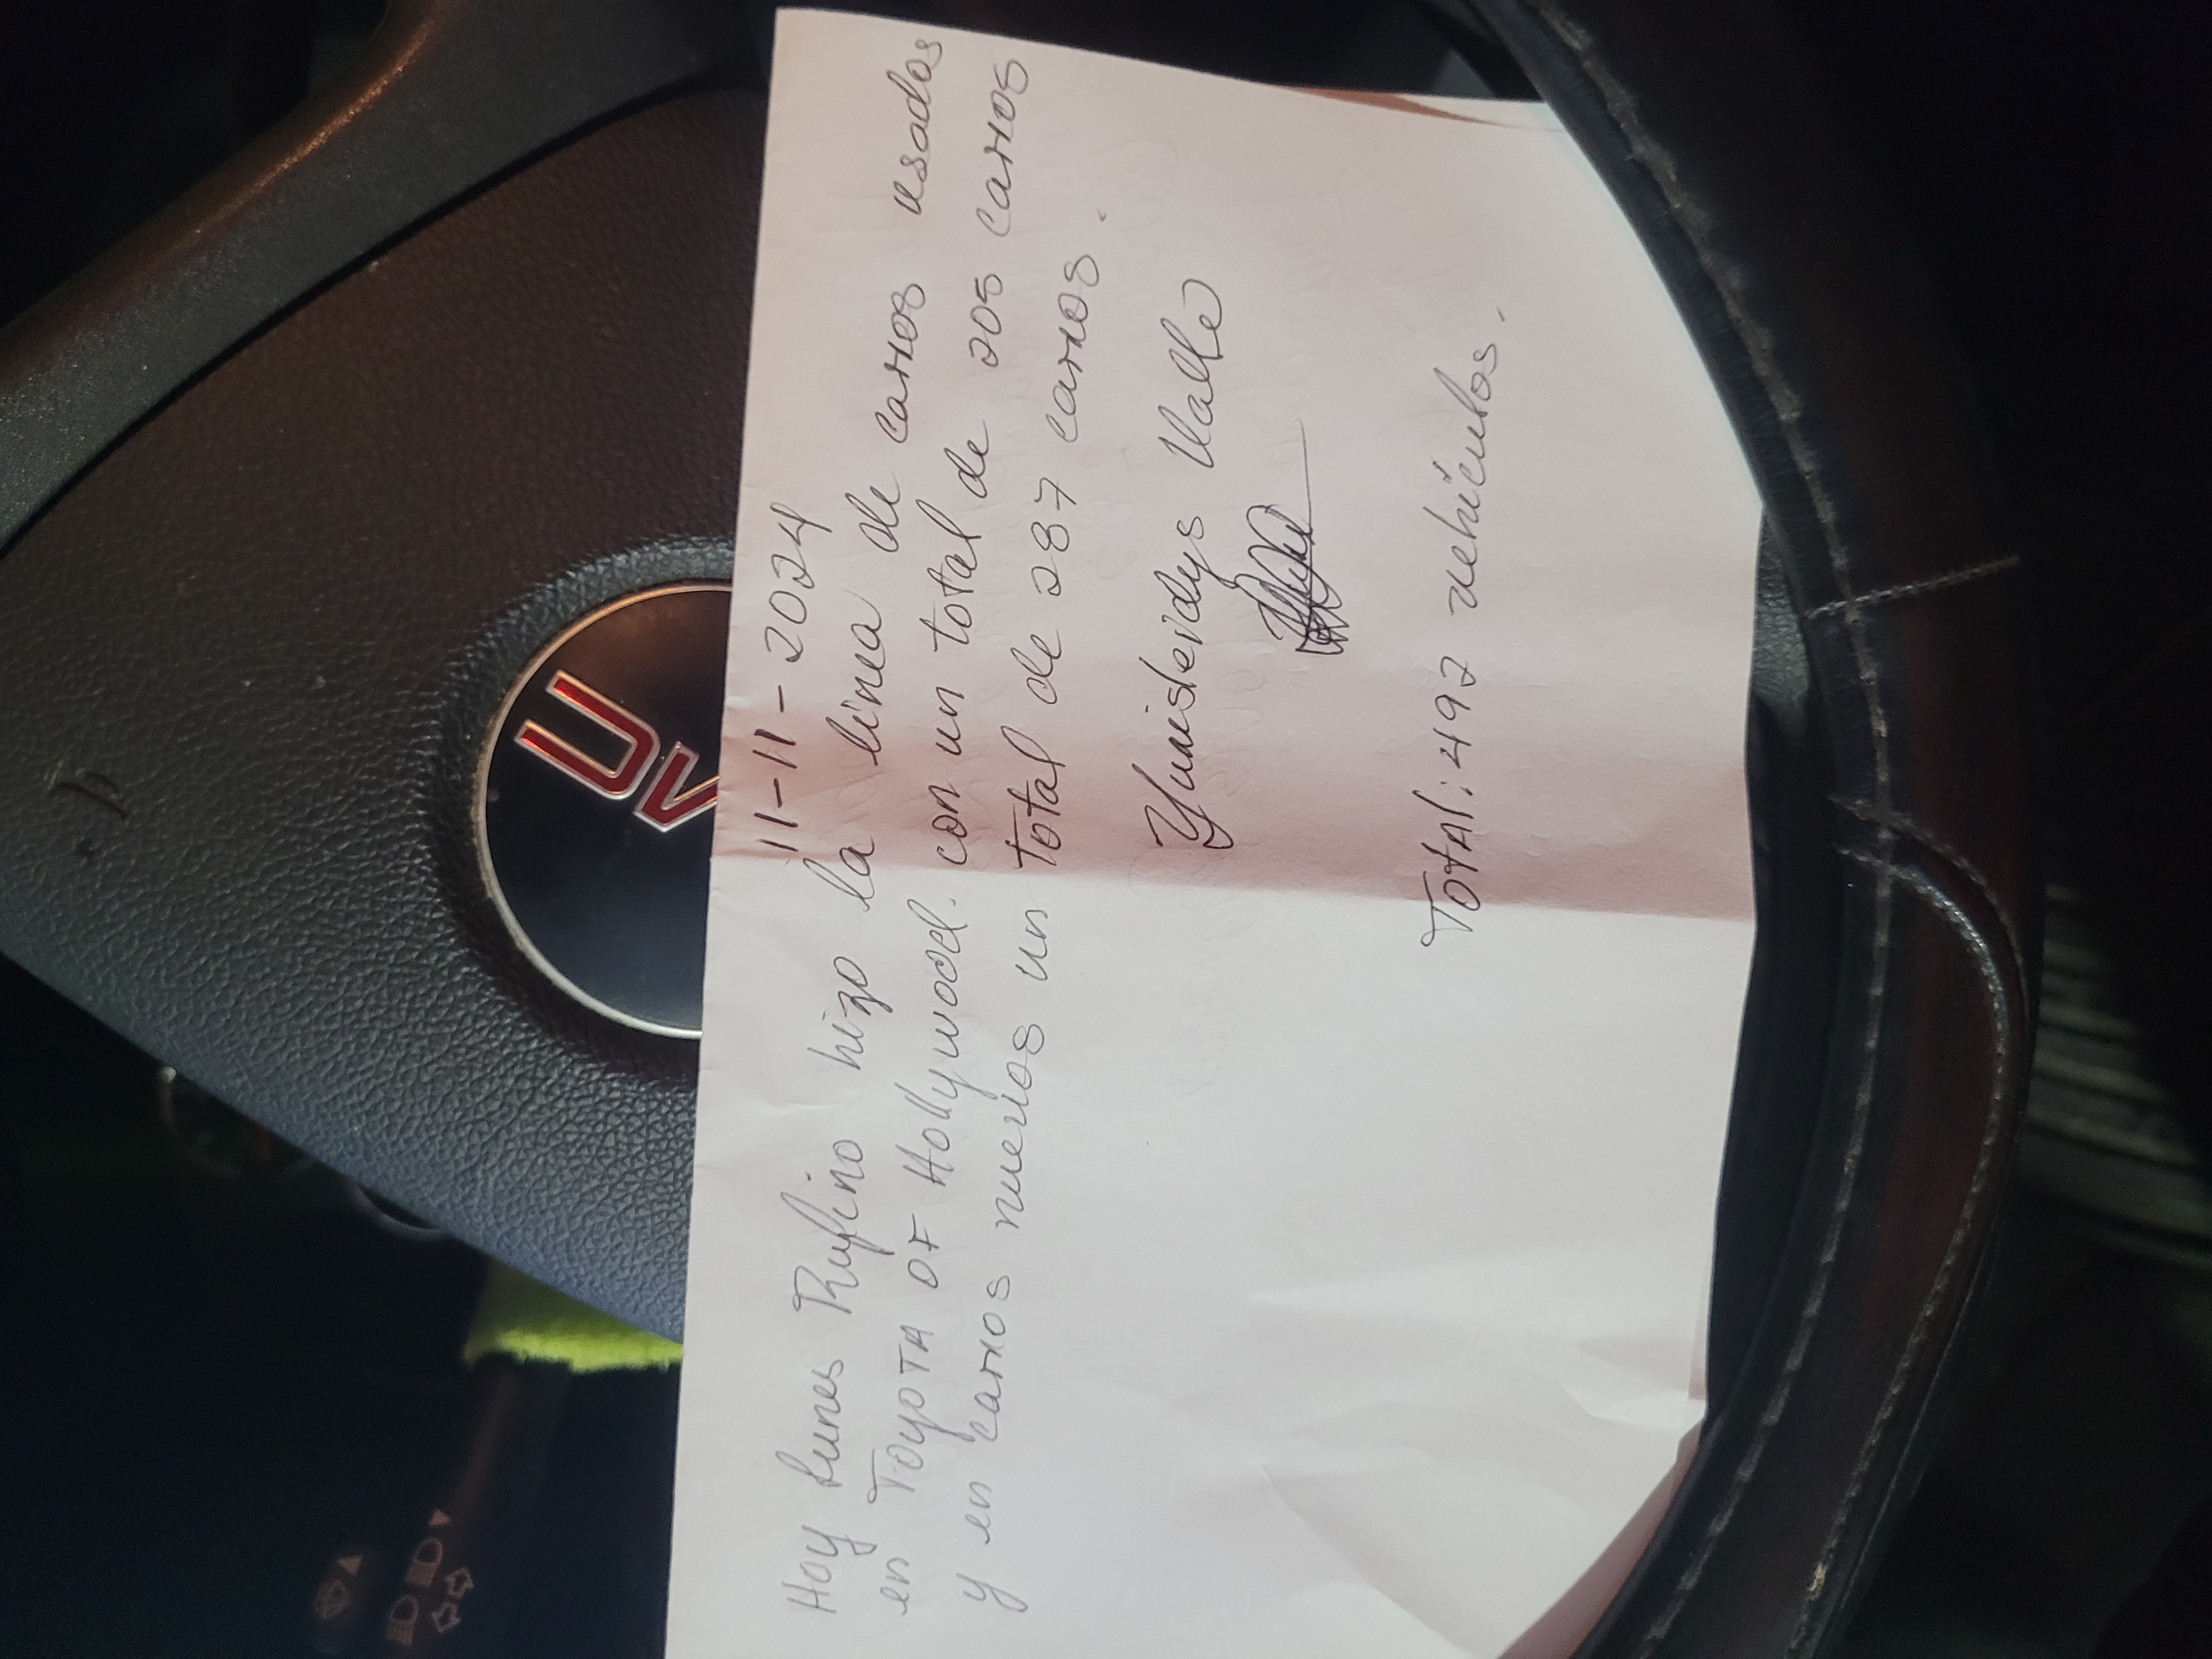 11-11-2024
Hoy lunes Rufino hizo la linea de carros usados
en TOYOTA OF Hollywood. con un total de 205 carros
y en carros nuevos un total de 287 carros.
Yunisleidys Valle
Total: 492 vehículos.
UV